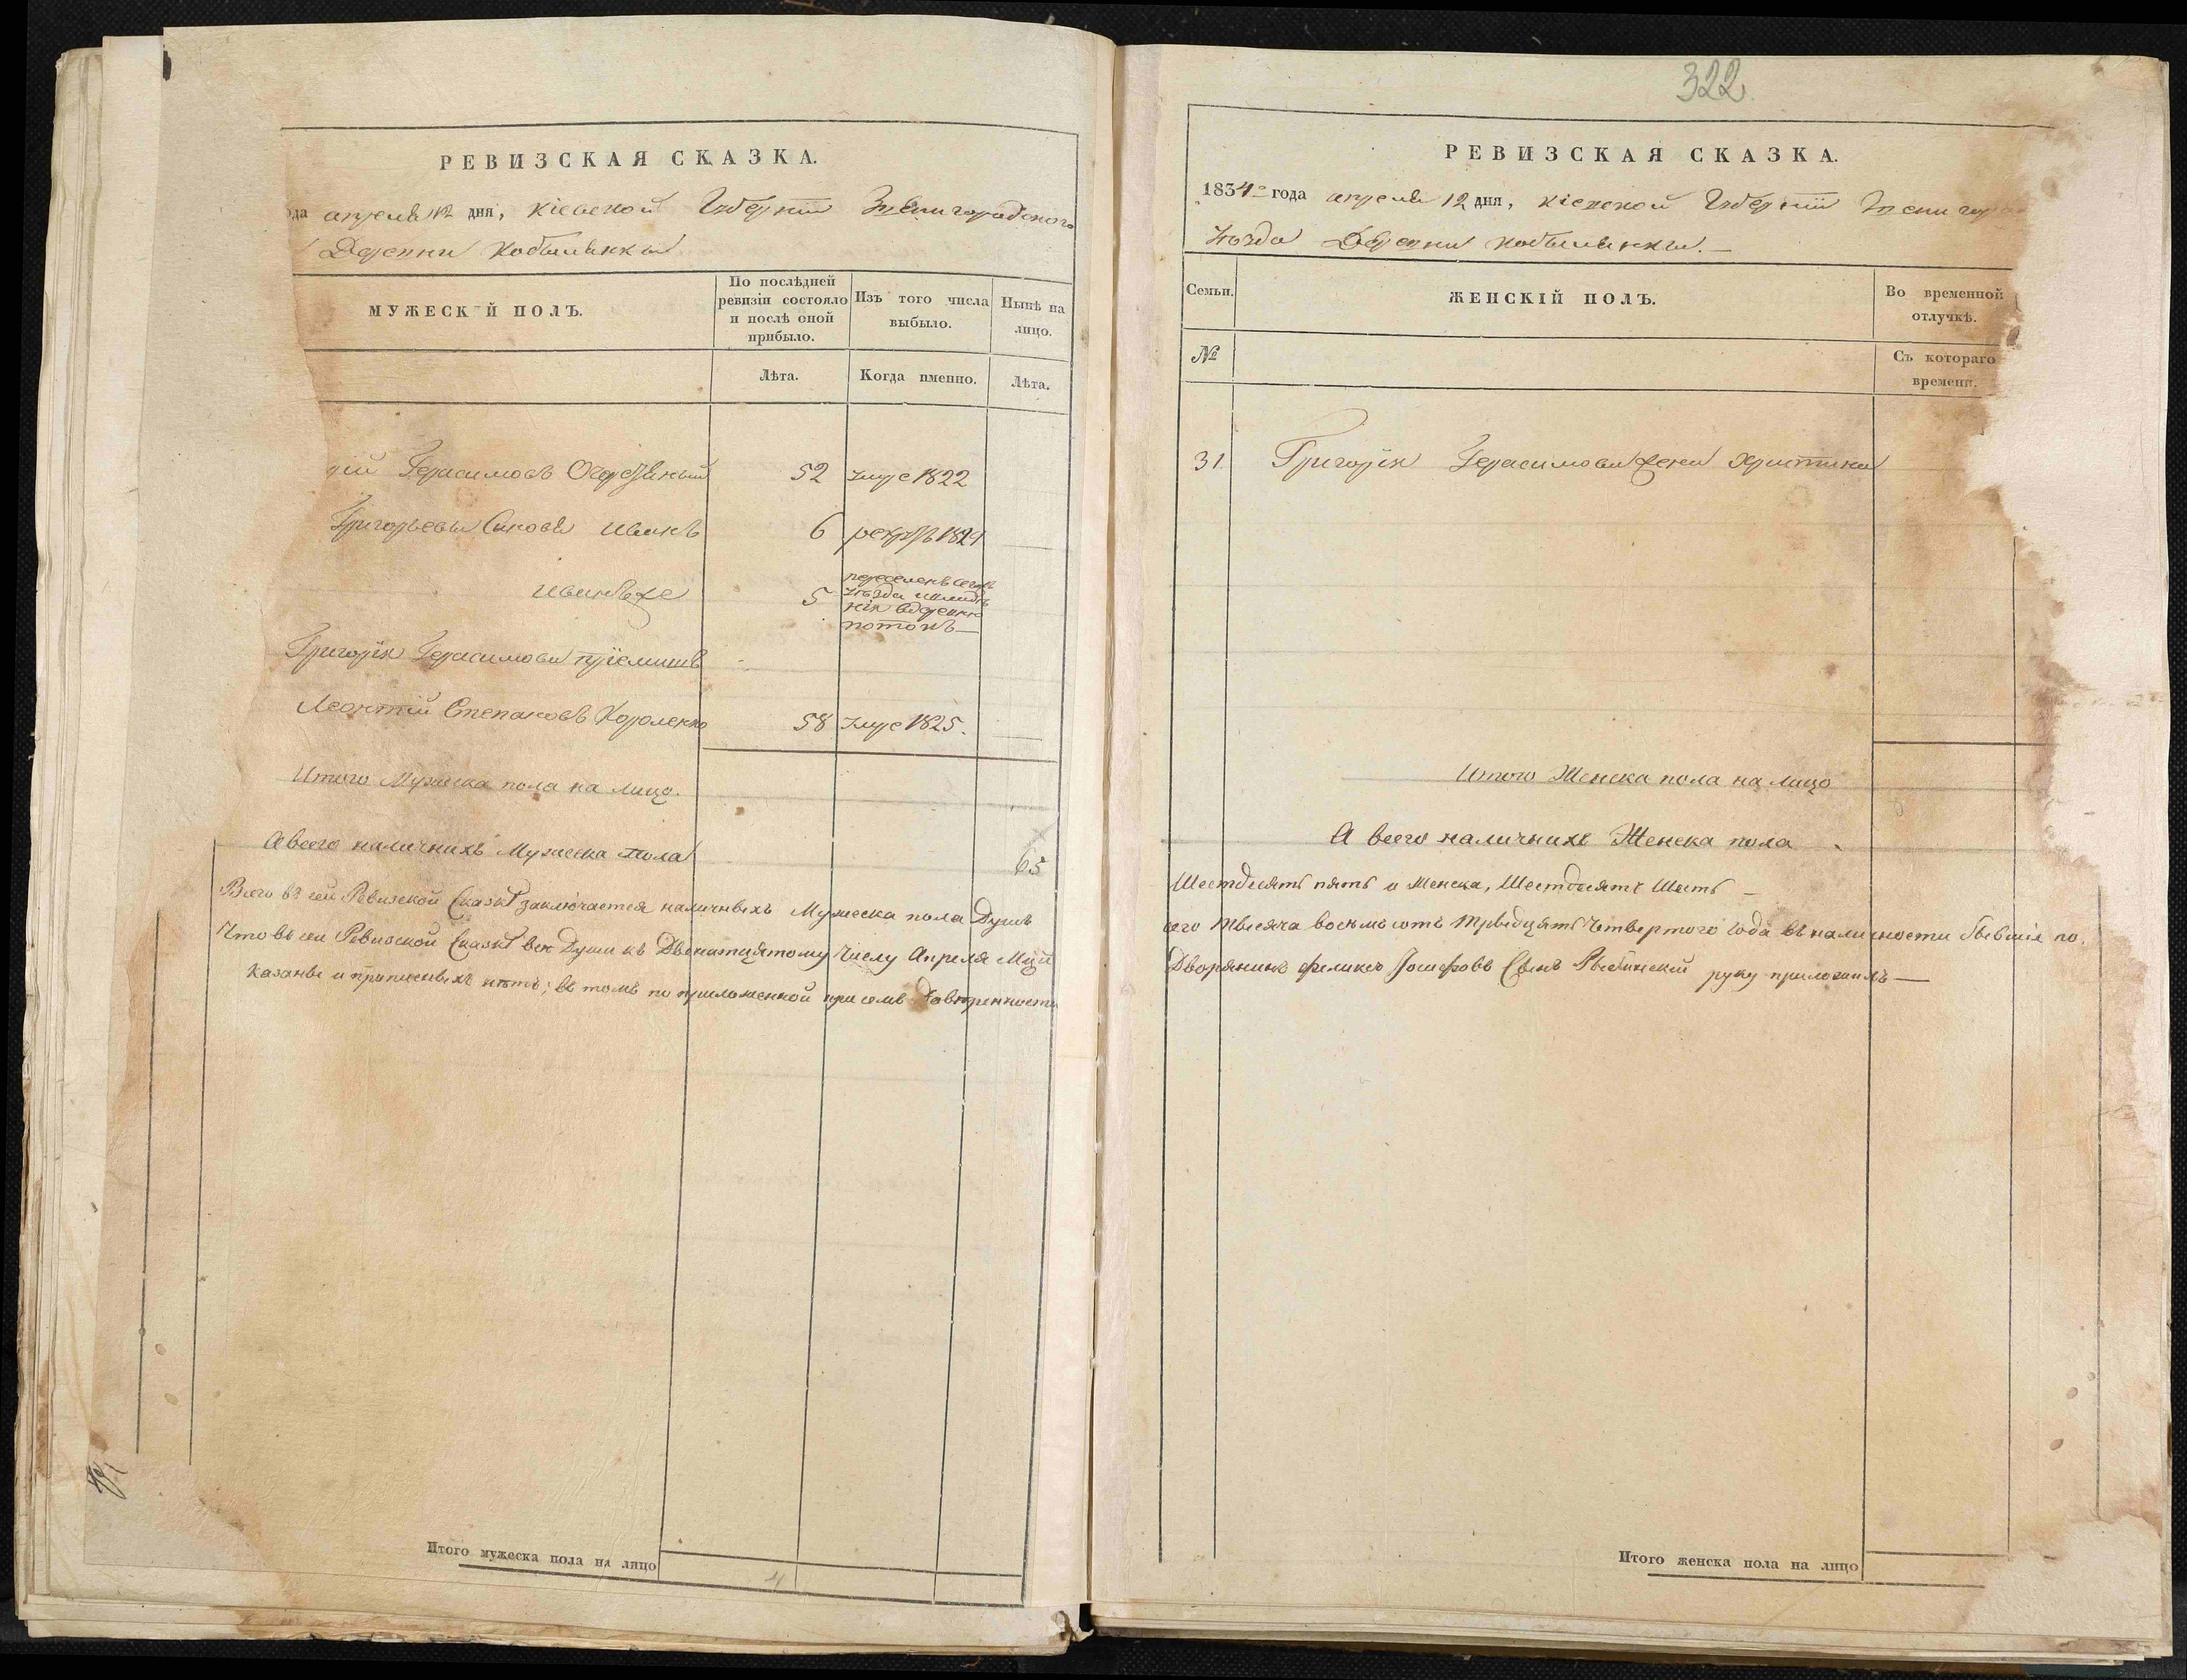 РЕВИЗСКАЯ СКАЗКА.
да апреля 12 дня, Кіевской Губерніи Звенигородского
Деревни Кобылянки
МУЖЕСКІЙ ПОЛЪ.
По послѣдней ревизіи состояло и послѣ оной прибыло.
Изъ того числа выбыло.
Нынѣ на лицо.
Лѣта.
Когда именно.
Лѣта.
рій Герасимовъ 52 умре 1822
Григорьевы Сыновя Иванъ 6 рекрутъ 1829
Иванъ же 5 переселенъ сегожъ
уѣзда
въ деревню
потокъ
Григорія Герасимова пріемишъ
Леонтій Степановъ Короленко 58 умре 1825.
Итого Мужеска пола на лицо.
А всего наличнихъ Мужеска пола 65
Всего въ сей Ревизской Сказкѣ заключается наличныхъ Мужеска пола Душъ
Что въ сей Ревизской Сказкѣ все Души къ Двенатцятому Числу Апреля Мця
казаны и прописныхъ нѣтъ; въ томъ по приложенной при семъ Довѣренности
Итого мужеска пола на лицо
4
322
РЕВИЗСКАЯ СКАЗКА.
1834го года апреля 12 дня, Кіевской Губерніи Звенигор
уѣзда Деревни Кобылянки.
Семьи.
ЖЕНСКІЙ ПОЛЪ.
Во временной отлучкѣ.
№
Съ котораго времени.
31 Григорія Герасимова жена Христина
Итого Женска пола на лицо
А всего наличнихъ Женска пола
Шестдесятъ пять и Женска, Шестдесятъ Шесть
сего тысяча восемьсотъ тридцять Четвертого года въ наличности бывшія по.
Дворянинъ Феликсъ Іосифовъ Сынъ Рыбинскій руку приложилъ
Итого женска пола на лицо